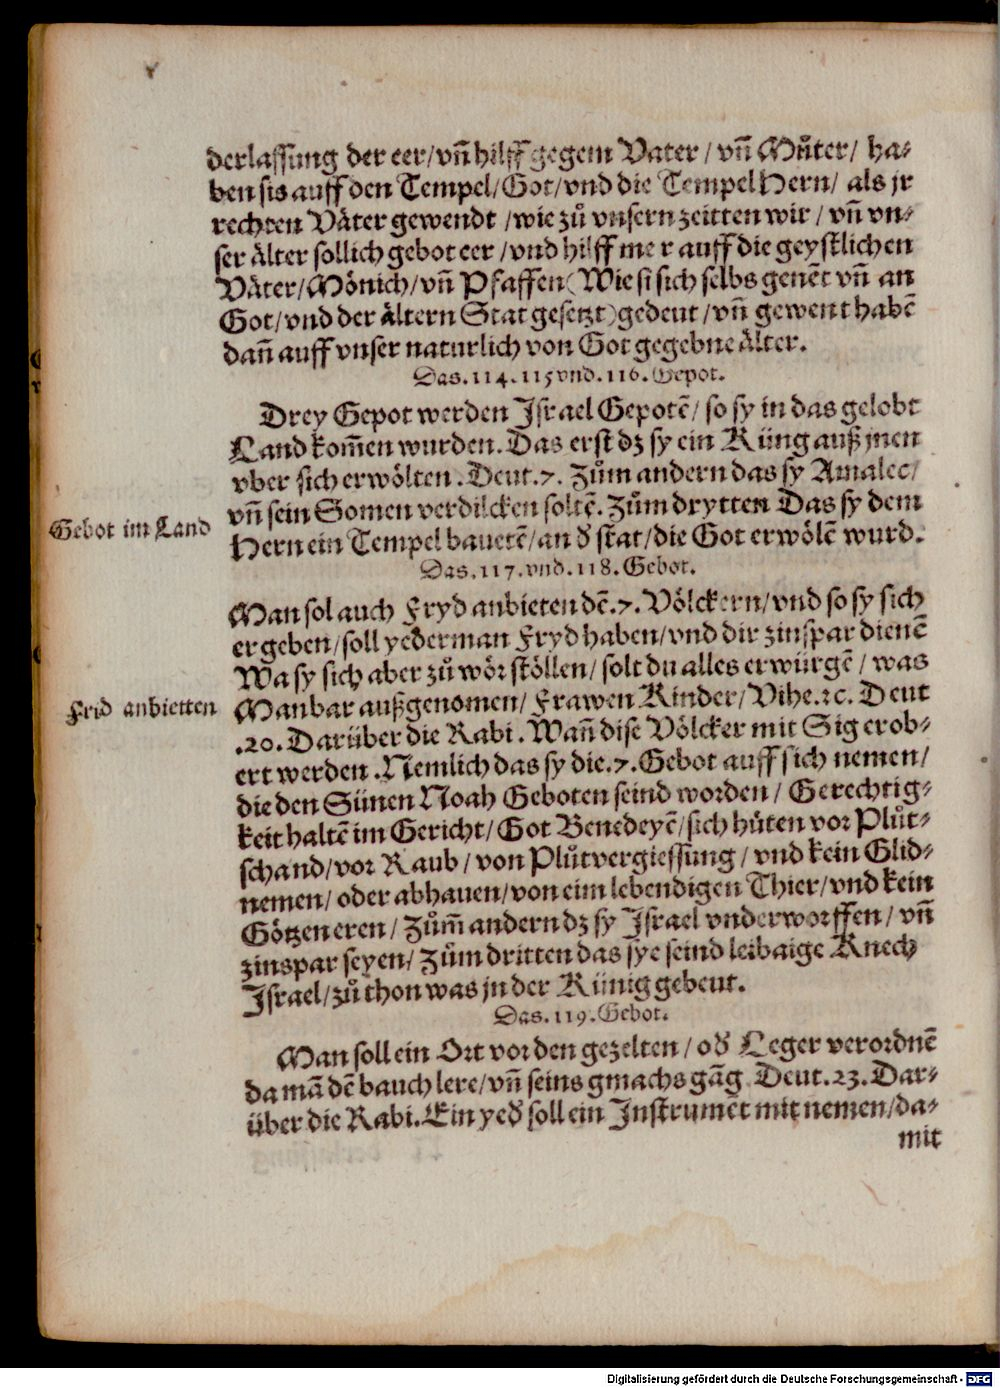 derlassung der eer/vnñ hilff gegem Vater/ vnñ Můter/ ha-
ben sis auff den Tempel/Got/vnd die Tempel Hern/ als jr
rechten Väter gewendt /wie zů vnsern zeitten wir/ vnñ vn-
ser älter sollich gebot eer /vnd hilff me r auff die geystlichen
Väter/Mönich/vnñ Pfaffen(Wie si sich selbs genēt vnñ an
Got/vnd der ältern Stat gesetzt)gedeut/vnñ gewent habē
dañ auff vnser naturlich von Got gegebne älter.
Das.114.115vnd.116.Gepot.
Drey Gepot werden Israel Gepotē/ so sy in das gelobt
Land kom̄en wurden.Das erst dz sy ein Küng auß jnen
vber sich erwölten.Deut.7. Zům andern das sy Amalec/
vnñ sein Somen verdilcken soltē. Zům drytten Das sy dem
Gebot im Land
Hern ein Tempel bauetē/an d̄ stat/die Got erwölē wurd.
Das.117.vnd.118.Gebot.
Man sol auch Fryd anbieten dē.7.Völckern/vnd so sy sich
ergeben/soll yederman Fryd haben/vnd dir zinspar dienē
Wa sy sich aber zů wör stöllen/ solt du alles erwürgē/ was
Frid anbietten
Manbar außgenomen/ Frawen Kinder/ Vihe.ꝛc. Deut
.20. Darüber die Rabi. Wañ dise Völcker mit Sig erob-
ert werden.Nemlich das sy die.7.Gebot auff sich nemen/
die den Sünen Noah Geboten seind worden/ Gerechtig-
keit haltē im Gericht/ Got Benedeyē/sich hůten vor Plůt-
schand/vor Raub/ von Plůtvergiessung/ vnd kein Glid-
nemen/ oder abhauen/von eim lebendigen Thier/vnd kein
Götzen eren/ Zům̄ andern dz sy Israel vnderworffen/ vnñ
zinspar seyen/ Zům dritten das sye seind leibaige Knech
Israel/zů thon was jn der Künig gebeut.
Das.119.Gebot.
Man soll ein Ort vor den gezelten/ od̄ Leger verordnē
da mā dē bauch lere/vnñ seins gmachs gāg Deut.23.Dar-
über die Rabi.Ein yed̄ soll ein Instrumēt mit nemen/da-
mit
Digitalisierung gefördert durch die Deutsche Forschungsgemeinschaft - DFG